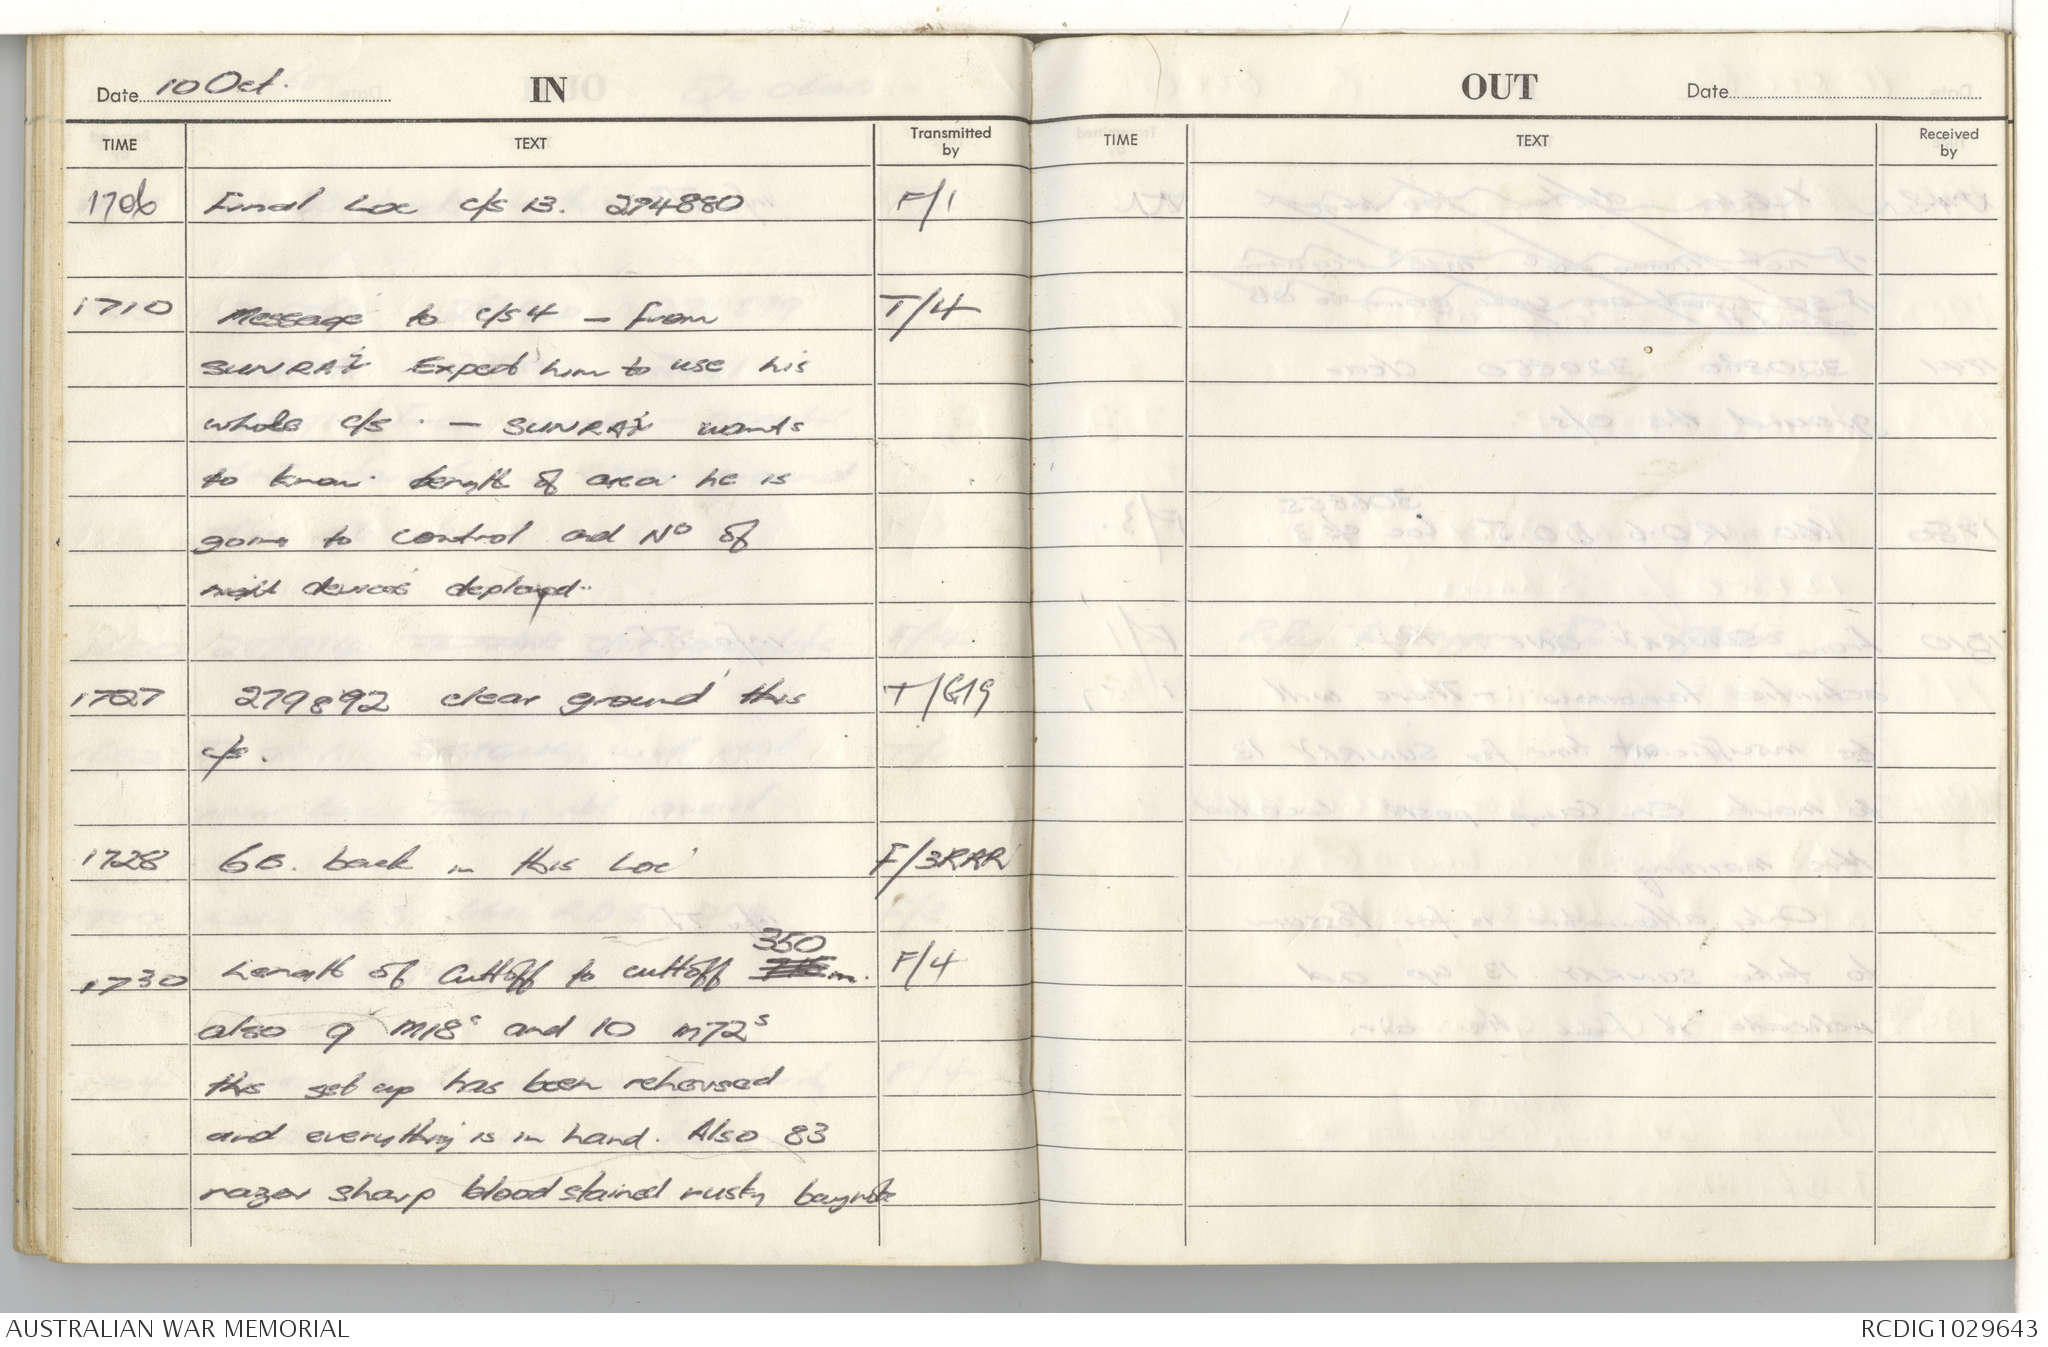 Date 10 Oct. IN
TIME TEXT Transmitted by
1706 Final Loc c/s 13. 274880 F/1
1710 Message to c/s 4 - from T/4
SUNRAY Expect him to use his
whole c/s. - SUNRAY wants
to know. Length of area he is
going to control and No of
night devices deployed.
1727 279892 clear ground this T/G19
c/s.
1728 6B. back in this Loc F/3RAR
350
1730 Length of Cuttoff to cuttoff m. F/4
also 9 M18s and 10 M72s
this set up has been rehersed
and everything is in hand. Also 83
razor sharp blood stained rusty
OUT Date
TIME TEXT Received by
AUSTRALIAN WAR MEMORIAL RCDIG1029643